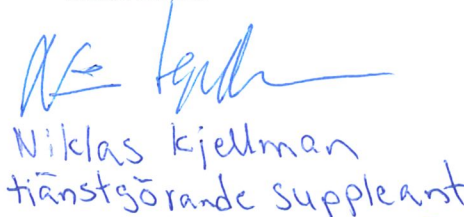 Niklas Kjellman
tjänstgörande suppleant